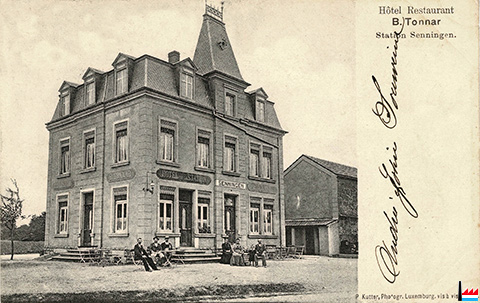 Hôtel Restaurant
B. Tonnar
Station Senningen.
Souvenir
HOTEL
P. Kutter, Photogr. Luxemburg, vis à vis